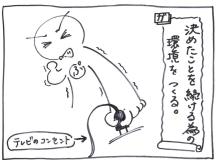 決めたことを続ける為の
環境をつくる。
ぷり
テレビのコンセント